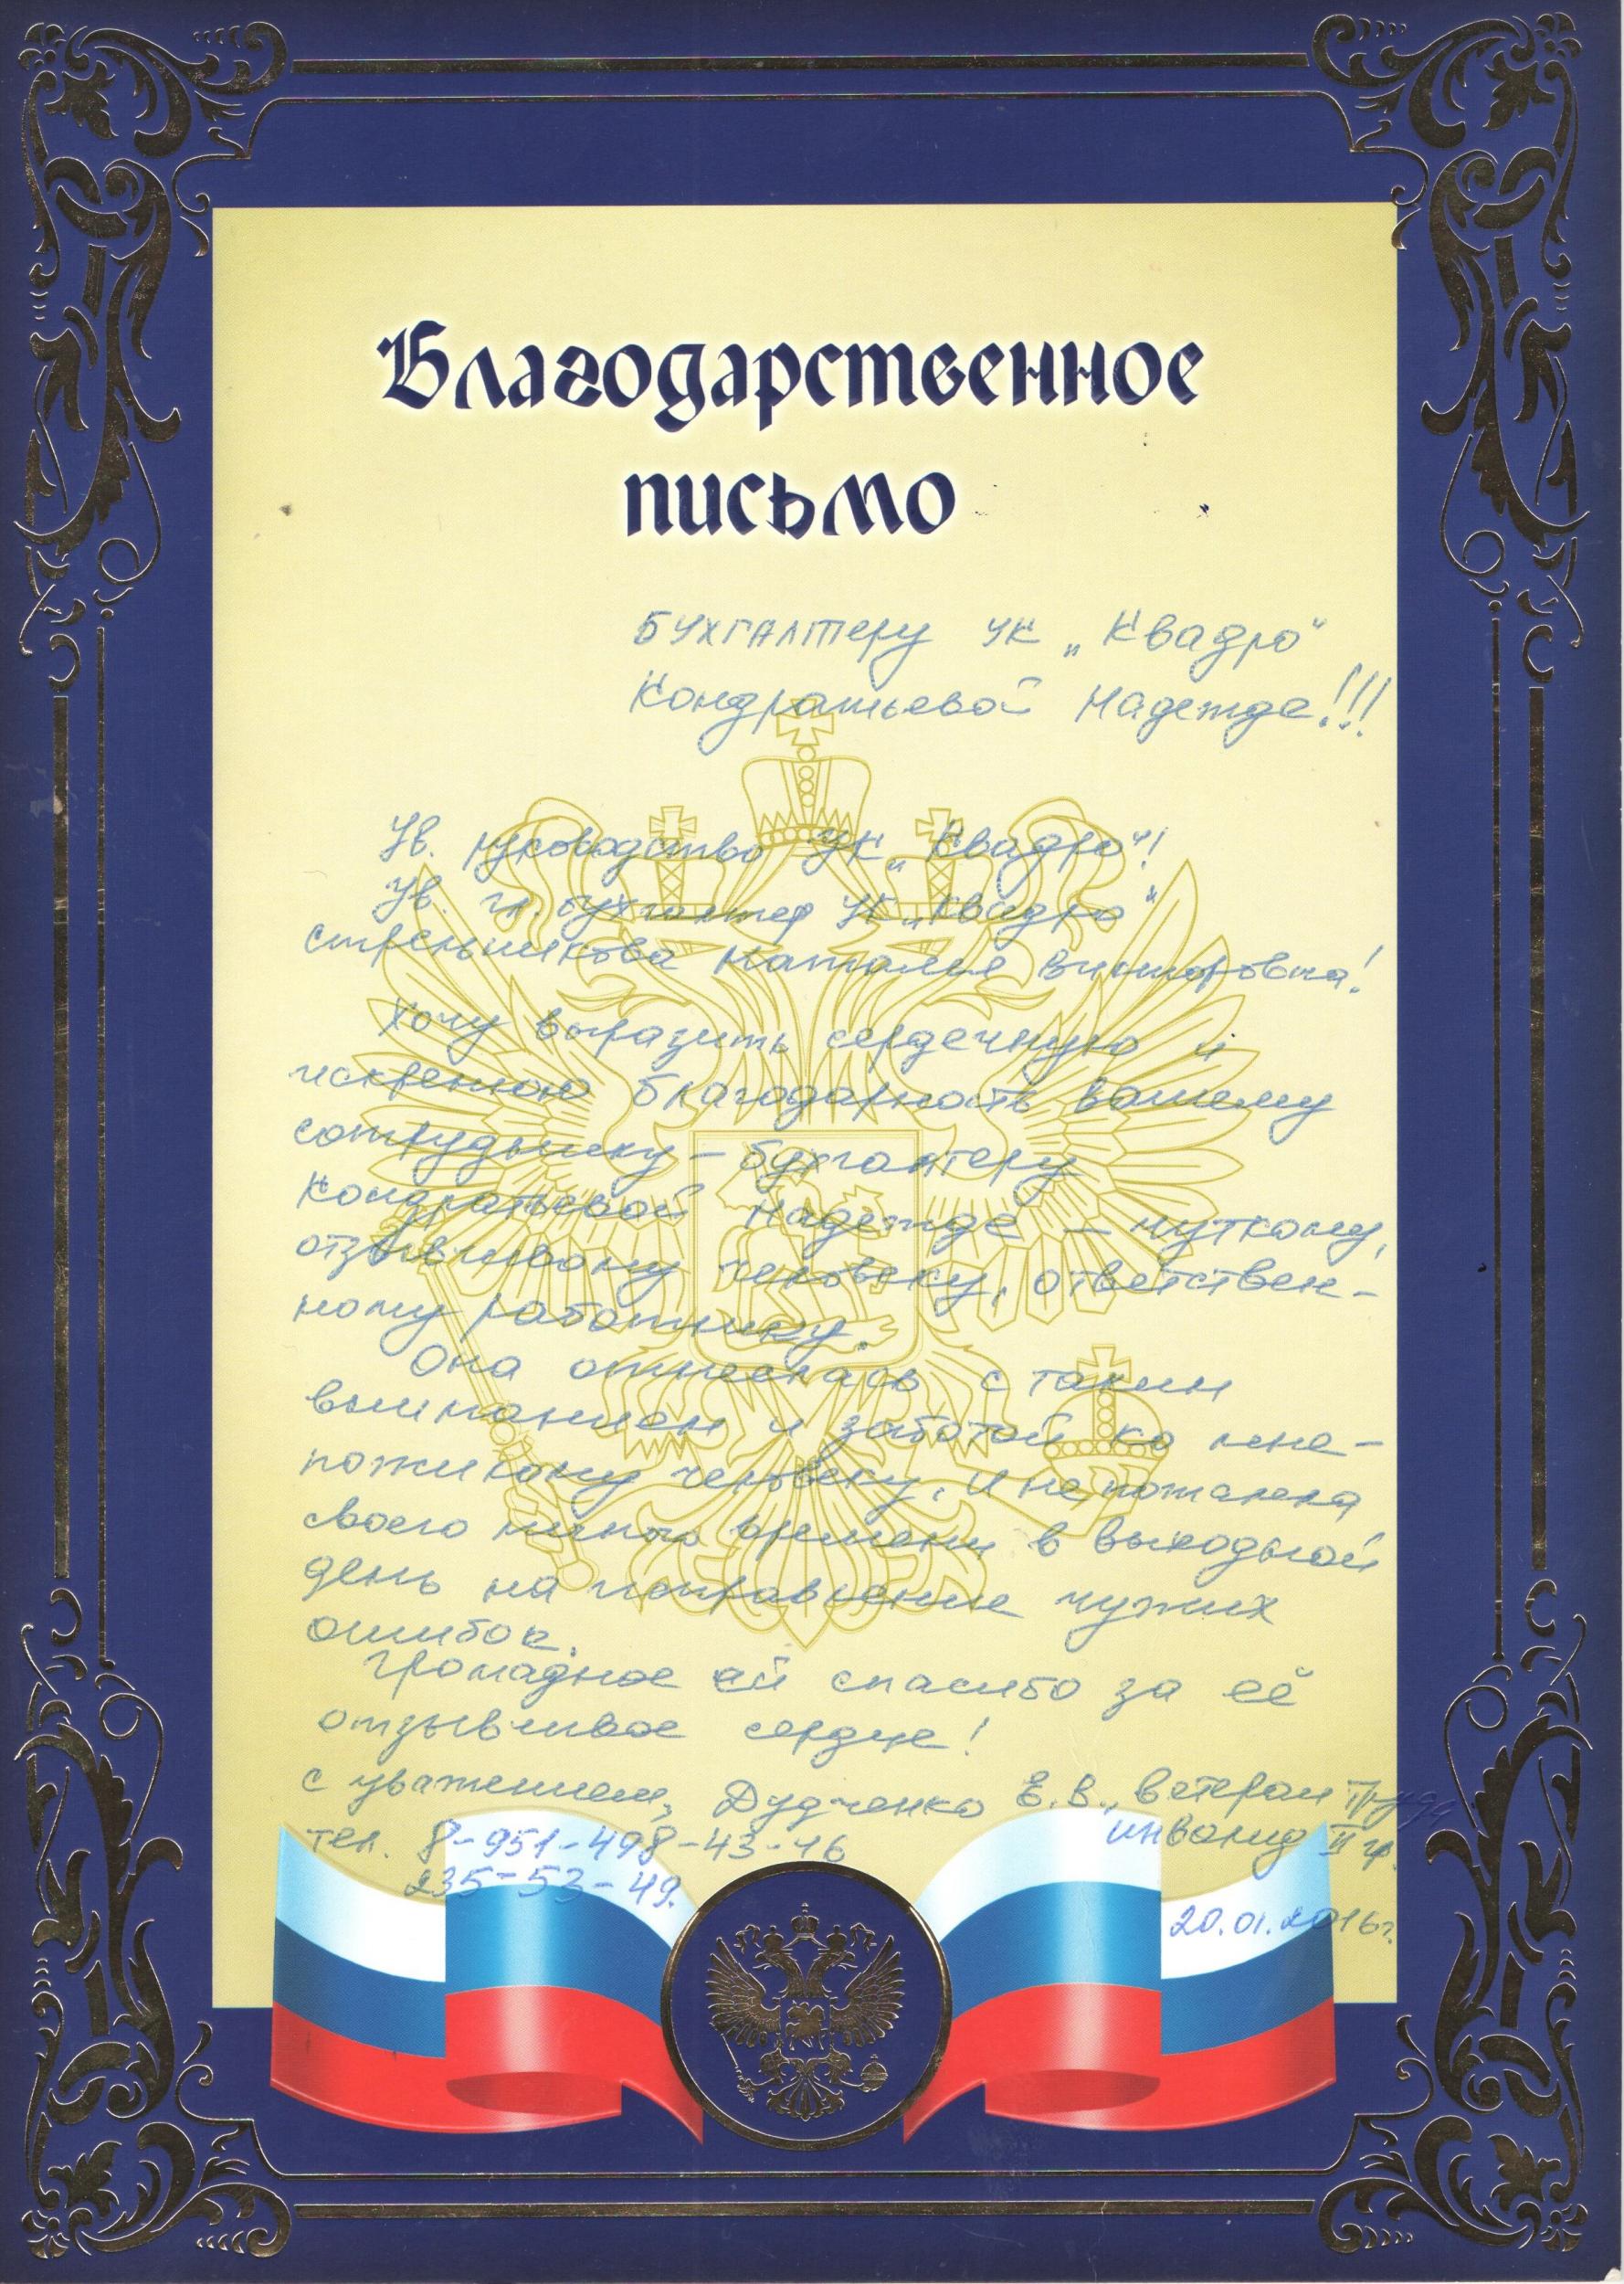 Благодарственное
письмо
Бухгалтеру УК „Квадро"
Кондратьевой Надежде!!!
Ув. руководство УК „Квадро"!
Ув. гл. бухгалтер УК „Квадро"
Стрельникова Наталья Викторовна!
Хочу выразить сердечную и
искреннюю благодарность вашему
сотруднику – бухгалтеру
Кондратьевой Надежде – чуткому,
отзывчивому человеку, ответствен-
ному работнику.
Она отнеслась с таким
вниманием и заботой ко мне –
пожилому человеку. И не пожалела
своего личного времени в выходной
день на исправление чужих
ошибок.
Громадное ей спасибо за её
отзывчивое сердце!
С уважением, Дудченко Е.В., ветеран труда
инвалид II гр.
тел. 8-951-498-43-16
235-53-49.
20.01.2016г.